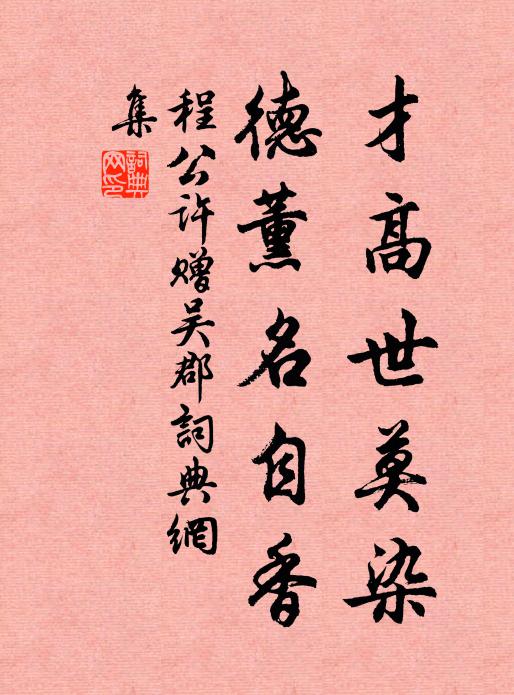 才高世莫染
德薰名自香
程公许赠吴郡詞典網
集
詞典网印